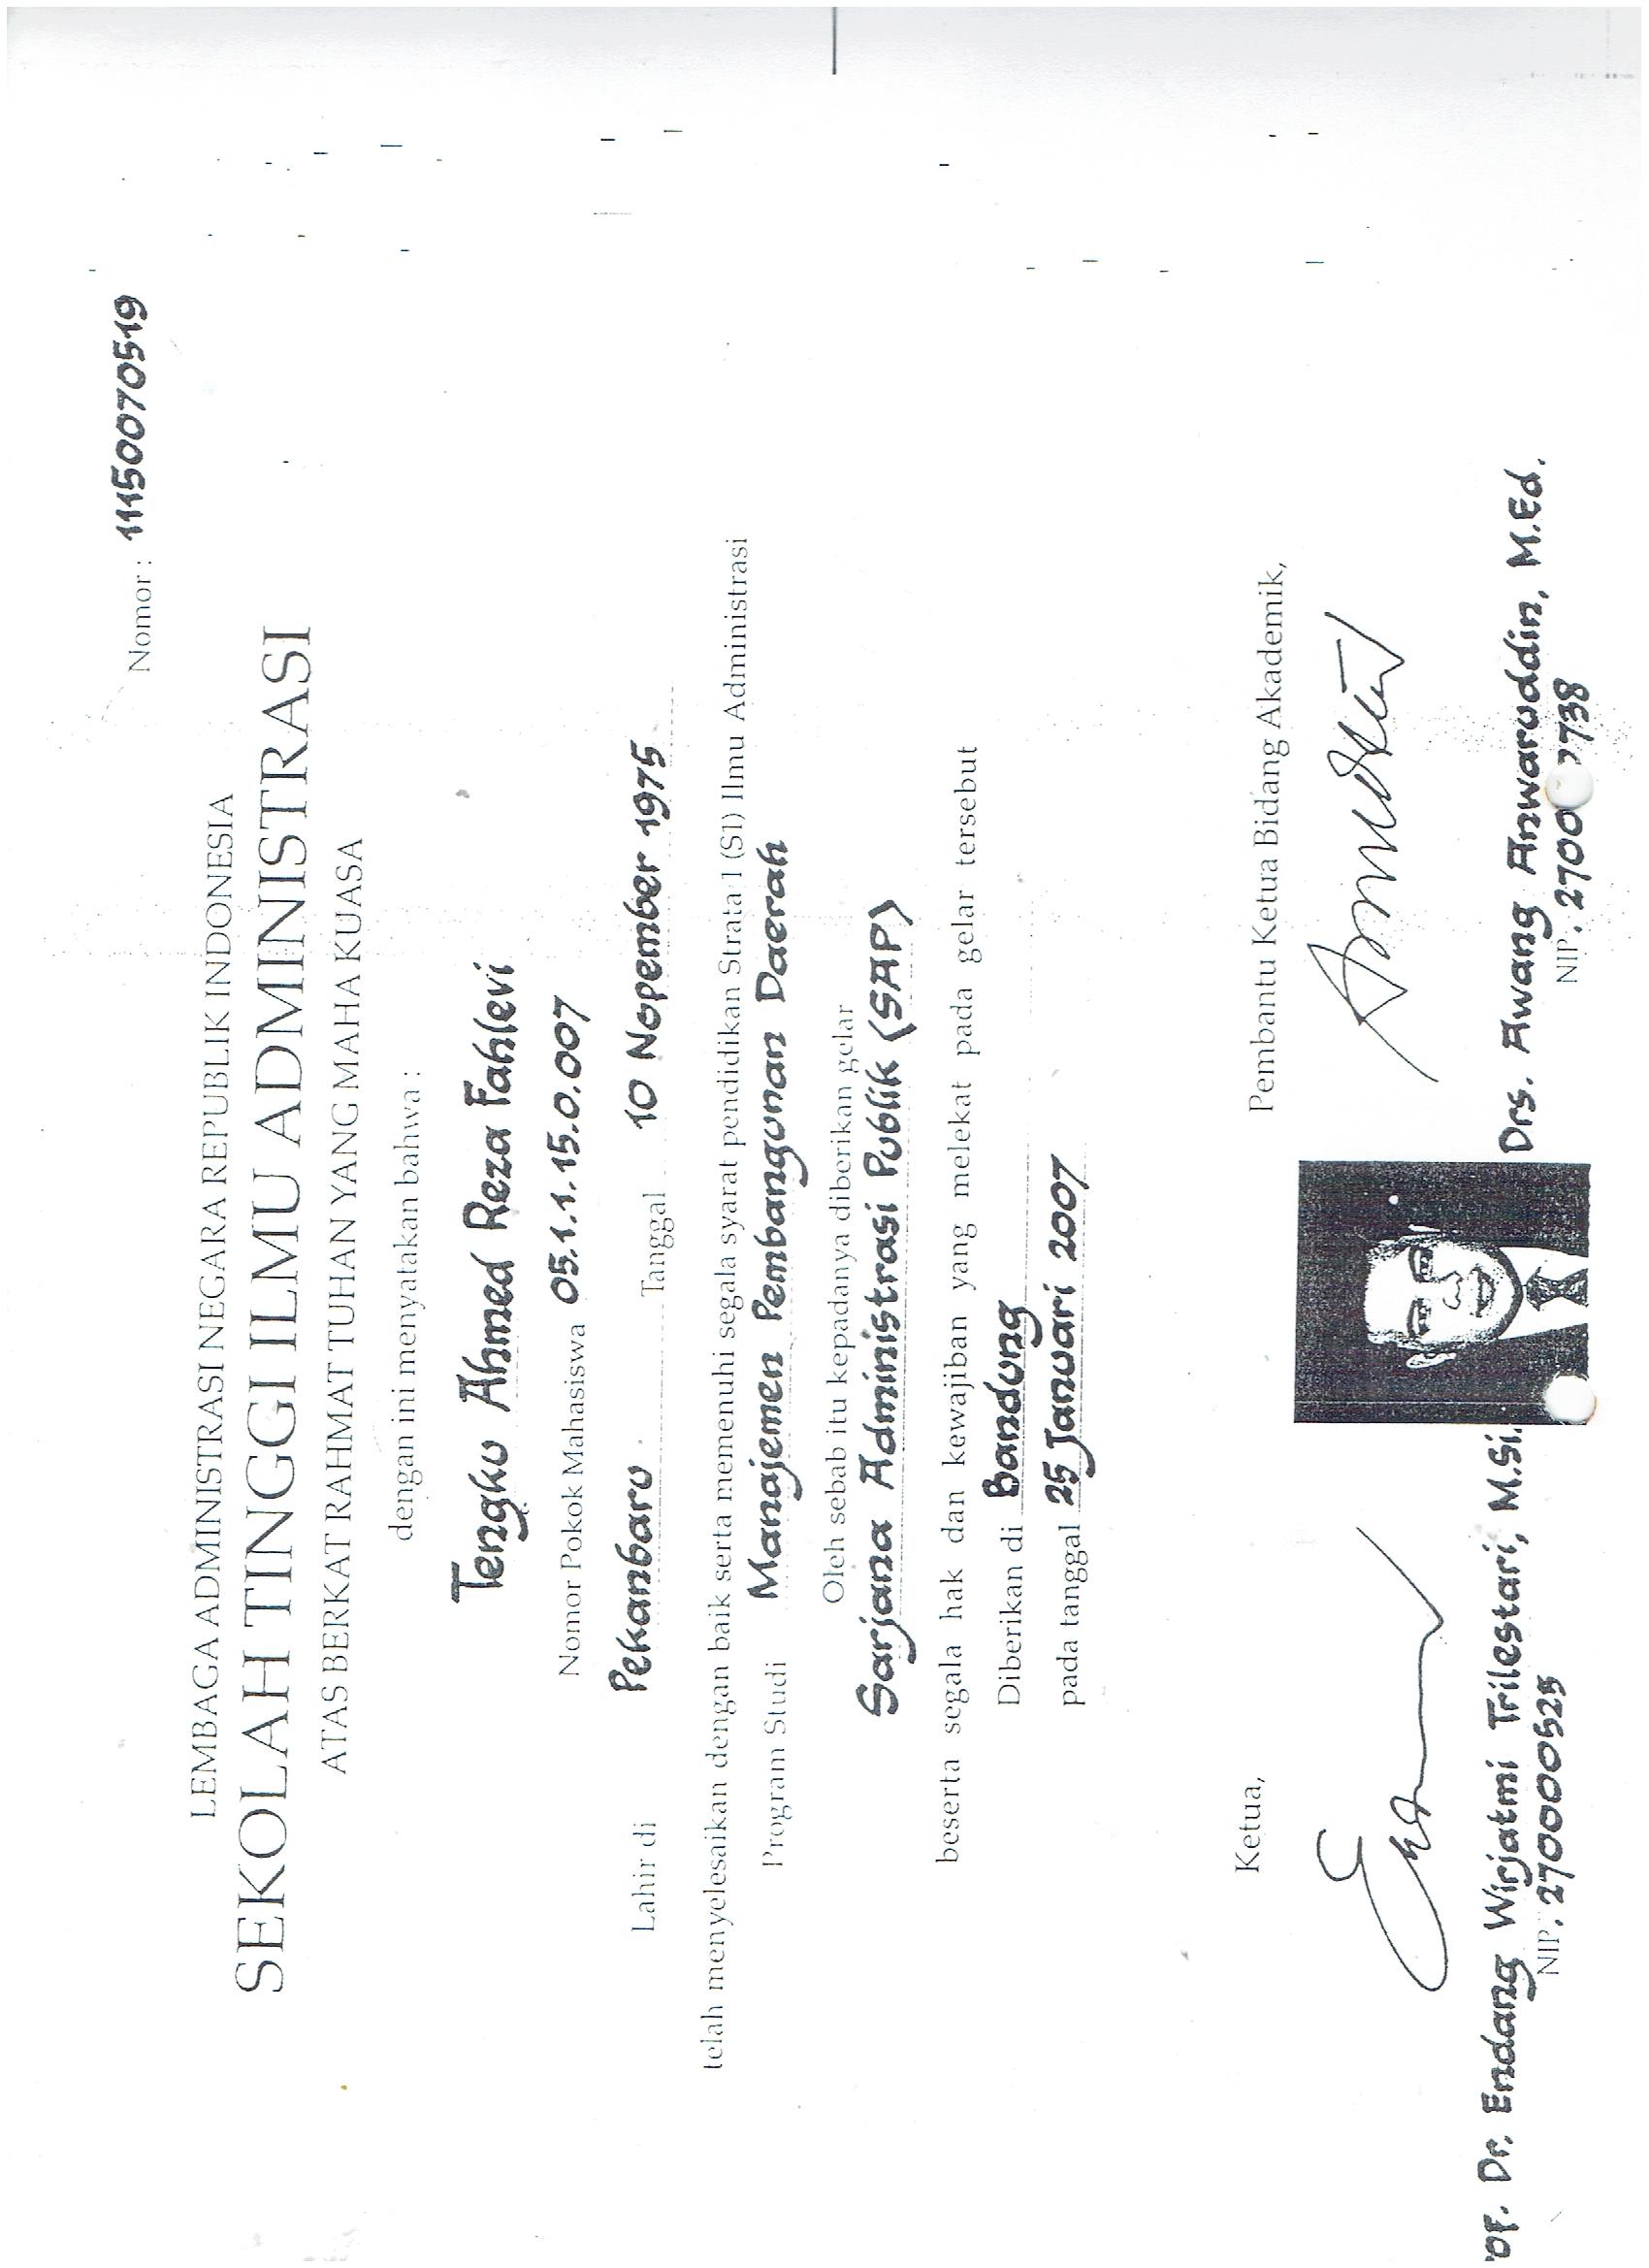 Nomor : 1115007070519
LEMBAGA ADMINISTRASI NEGARA REPUBLIK INDONESIA
SEKOLAH TINGGI ILMU ADMINISTRASI
ATAS BERKAT RAHMAT TUHAN YANG MAHA KUASA
dengan ini menyatakan bahwa :
Tengku Ahmed Reza Fahlevi
Nomor Pokok Mahasiswa 05.1.1.15.0.007
Lahir di Pekanbaru Tanggal 10 Nopember 1975
telah menyelesaikan dengan baik serta memenuhi segala syarat pendidikan Strata 1 (S1) Ilmu Administrasi
Program Studi Manajemen Pembangunan Daerah
Oleh sebab itu kepadanya diberikan gelar
Sarjana Administrasi Publik (SAP)
beserta segala hak dan kewajiban yang melekat pada gelar tersebut
Diberikan di Bandung
pada tanggal 25 Januari 2007
Ketua, Pembantu Ketua Bidang Akademik,
of. Dr. Endang Wirjatmi Trilestari, M.Si. Drs. Awang Anwaruddin, M.Ed.
NIP. 270000525 NIP.